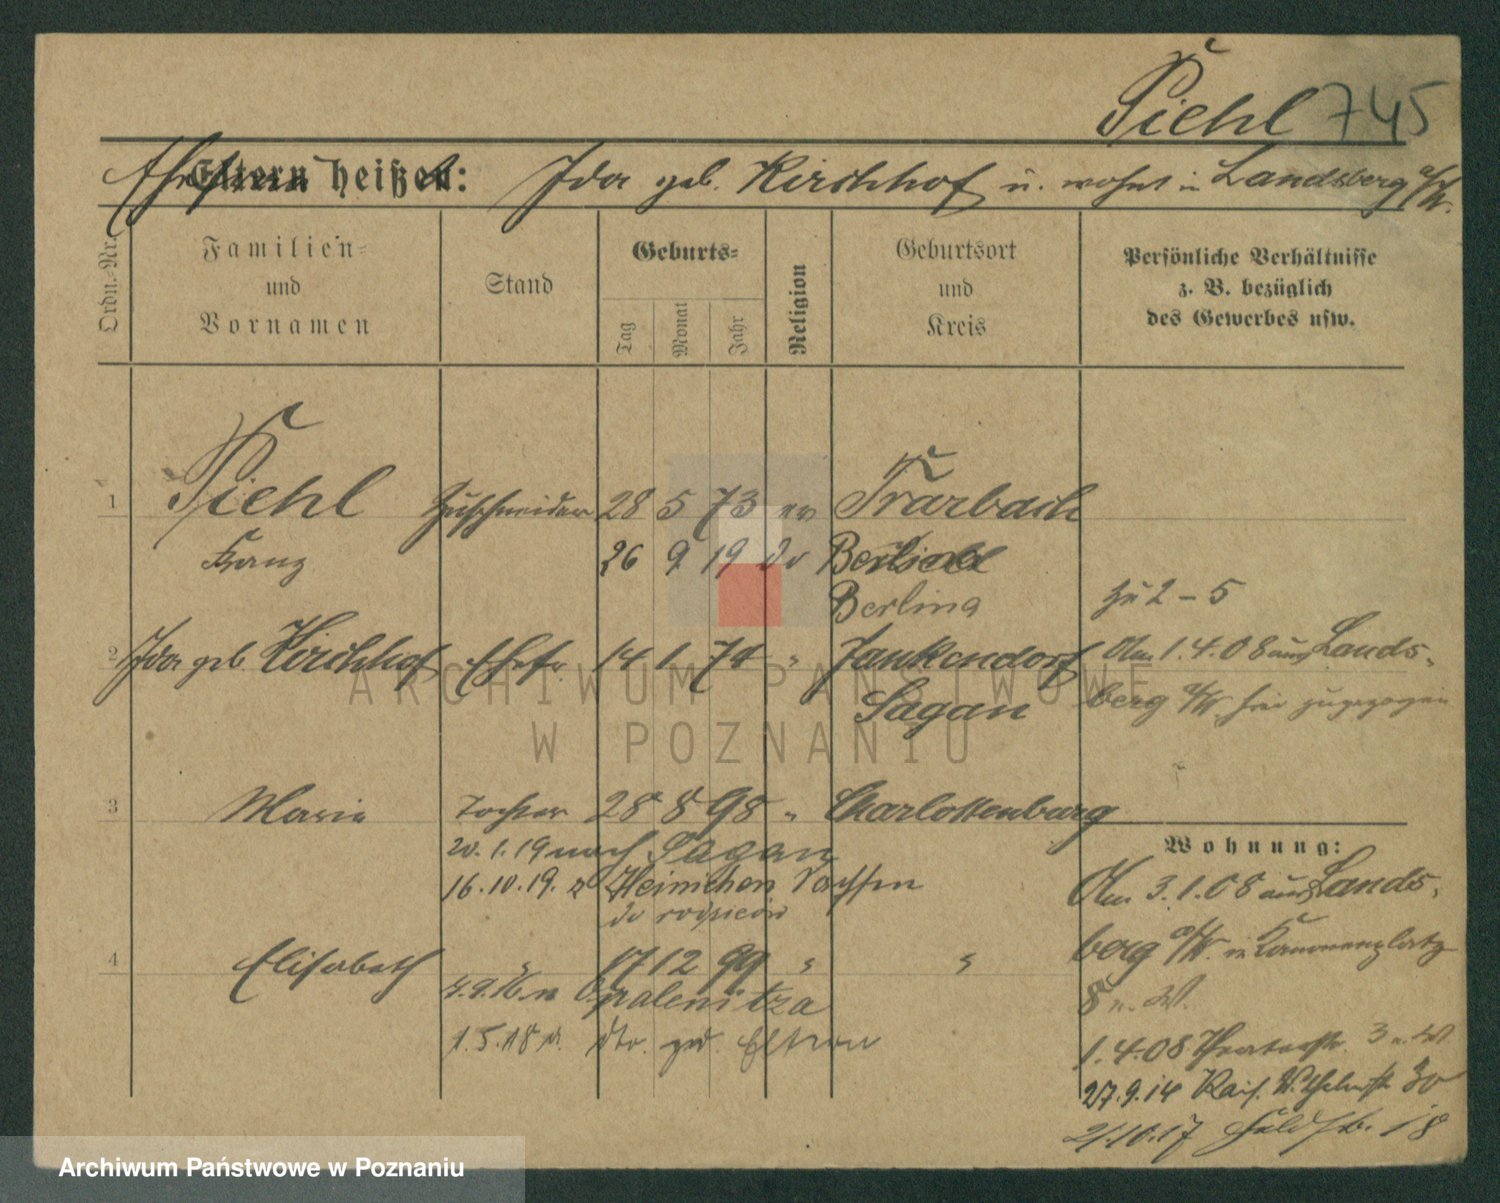 Piehl 745
Ehefrau heißt: Ida geb. Kirchhof u. wohnt in Landsberg a/W.
Ordn.-Nr.
Familien-
und
Vornamen
Stand
Geburts-
Tag
Monat
Jahr
Religion
Geburtsort
und
Kreis
Persönliche Verhältnisse
z. B. bezüglich
des Gewerbes usw.
1 Piehl Zuschneider 28 5 73 ev Trarbach
Franz 26 9 19 do Berlin
Berlina
zu 2 – 5
2 Ida geb. Kirchhof Ehefr. 14 1 74 " Jankendorf
Sagan
Am 1.4.08 aus Lands-
berg a/W. hier zugezogen
3 Maria Tochter 28 8 98 " Charlottenburg
20.1.19 nach Sagan
16.10.19. z Heinichen Sachsen
do rodziców
4 Elisabeth " 17 12 99 " "
4.9.16 n Opalenitza
1.5.18 v. dto. zu Eltern
Wohnung:
Am 3.1.08 aus Lands-
berg a/W. in Kanonenplatz
8 u. W.
1.4.08 3 u. W
27.9.14 Kais. Wilhelmstr 30
21.10.17 Feldstr. 18
ARCHIWUM PAŃSTWOWE
W POZNANIU
Archiwum Państwowe w Poznaniu